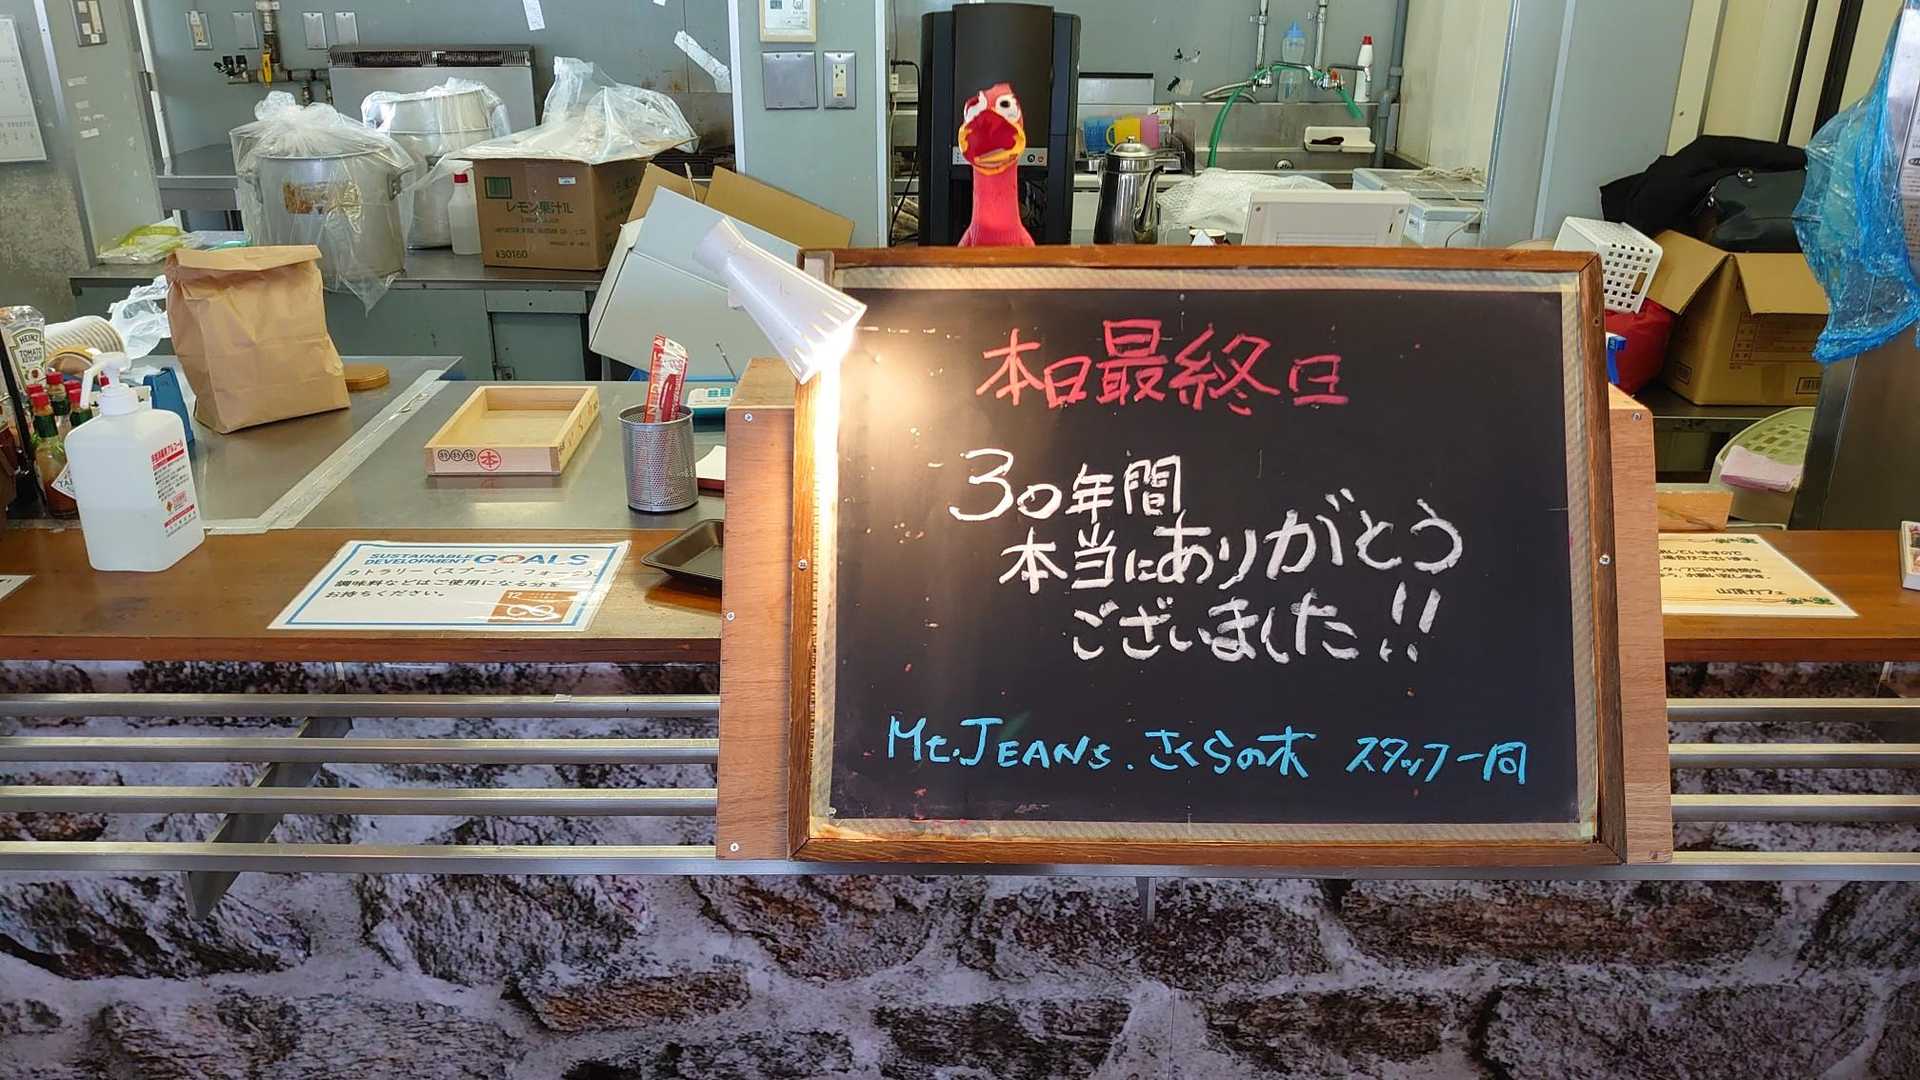 本日最終日
30年間
本当にありがとう
ございました!!
Mt.JEANs.さくらの木 スタッフ一同
SUSTAINABLE
DEVELOPMENT GOALS
カトラリー(スプーン・フォーク)、
調味料などはご使用になる分を
お持ちください。
12
レモン果汁1L
¥30160
HEINZ
TOMATO
KETCHUP
特特特 本
山頂カフェ